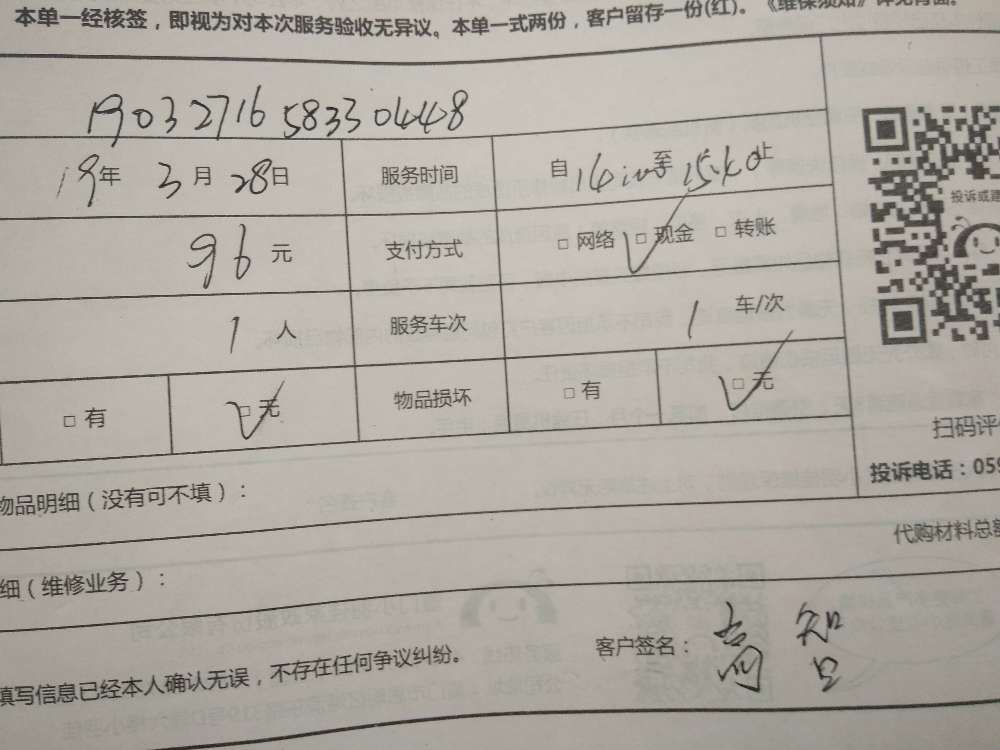 本单一经核签，即视为对本次服务验收无异议。本单一式两份，客户留存一份(红)。《维保须知》详见背面。
19032716583304448
19年 3月 28日 服务时间 自14:00至15:40止
96元 支付方式 □ 网络 □ 现金 □ 转账
1人 服务车次 1 车/次
□ 有 □ 无 物品损坏 □ 有 □ 无
投诉或建
扫码评
投诉电话：059
物品明细（没有可不填）：
代购材料总额
细（维修业务）：
填写信息已经本人确认无误，不存在任何争议纠纷。
客户签名：